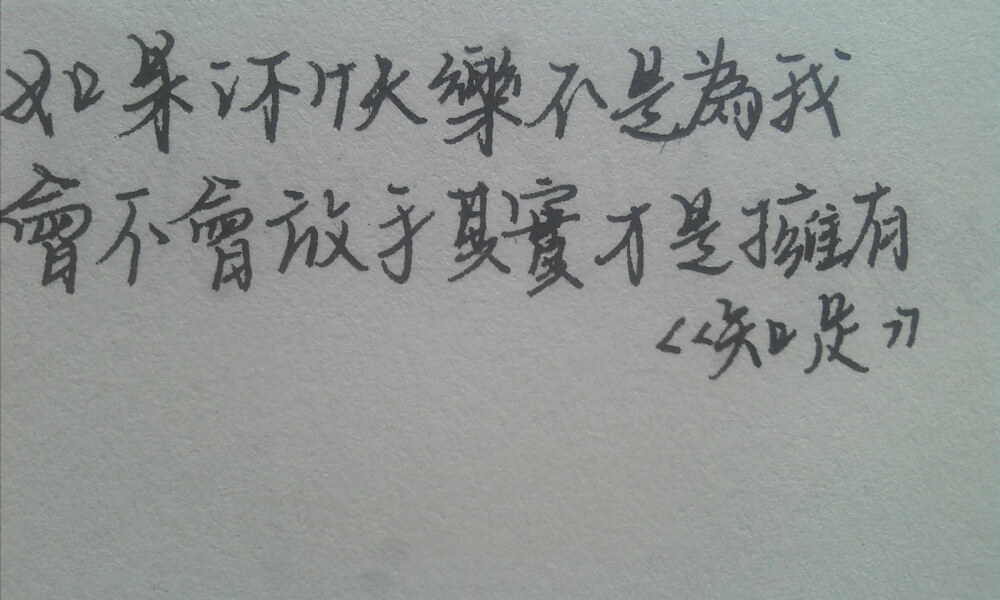 如果你快樂不是為我
會不會放手其實才是擁有
《知足》